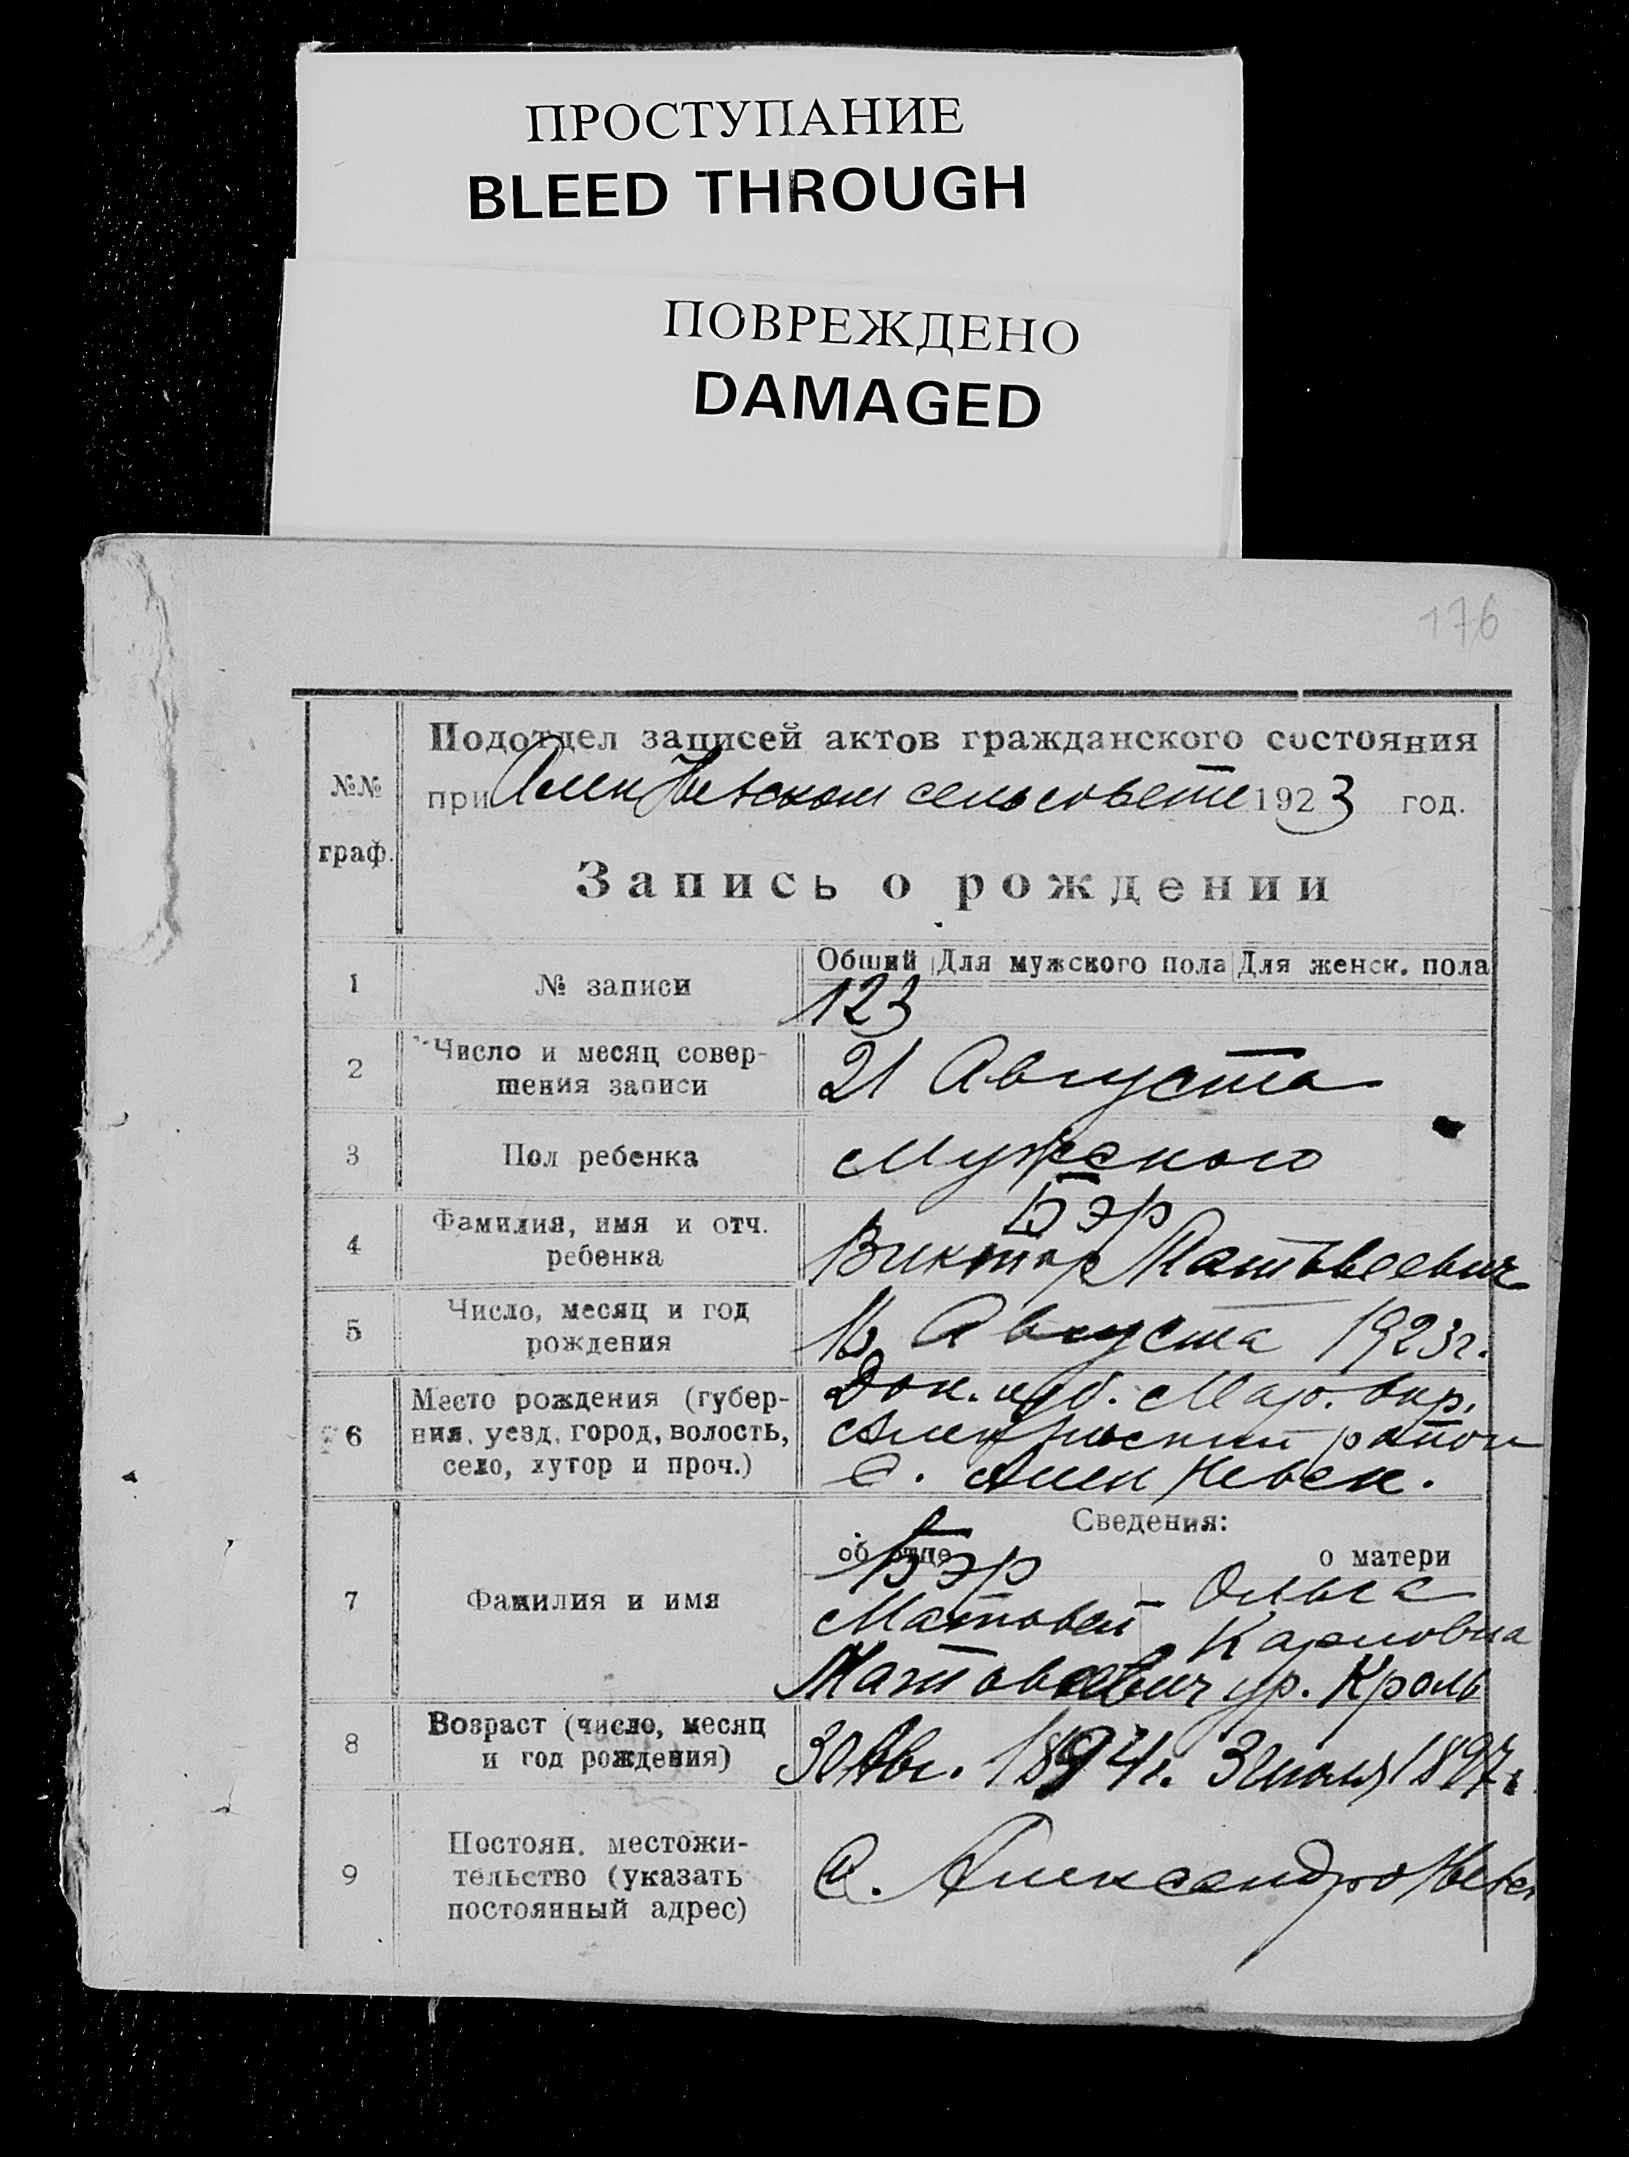 ПРОСТУПАНИЕ
BLEED THROUGH
ПОВРЕЖДЕНО
DAMAGED
176
Подотдел записей актов гражданского состояния
№№
при Алек Невском сельсовете 1923 год.
граф.
Запись о рождении
Общий Для мужского пола Для женск. пола
1 № записи
123
2 Число и месяц совер-
шения записи
21 Августа
3 Пол ребенка
Мужского
4 Фамилия, имя и отч.
ребенка
Бэр
Виктор Матвеевич
5 Число, месяц и год
рождения
Августа 1923 г.
6 Место рождения (губер-
ния, уезд, город, волость,
село, хутор и проч.)
Дон. губ. Мар. окр.
район
с. Алек Невск.
Сведения:
об отце о матери
7 Фамилия и имя
Бэр
Матвей Ольга
Карловна
Матвеевич ур. Кроль
8 Возраст (число, месяц
и год рождения)
30 Авг. 1894 г. 3 июля 1897 г.
9 Постоян. местожи-
тельство (указать
постоянный адрес)
С. Александро Невск